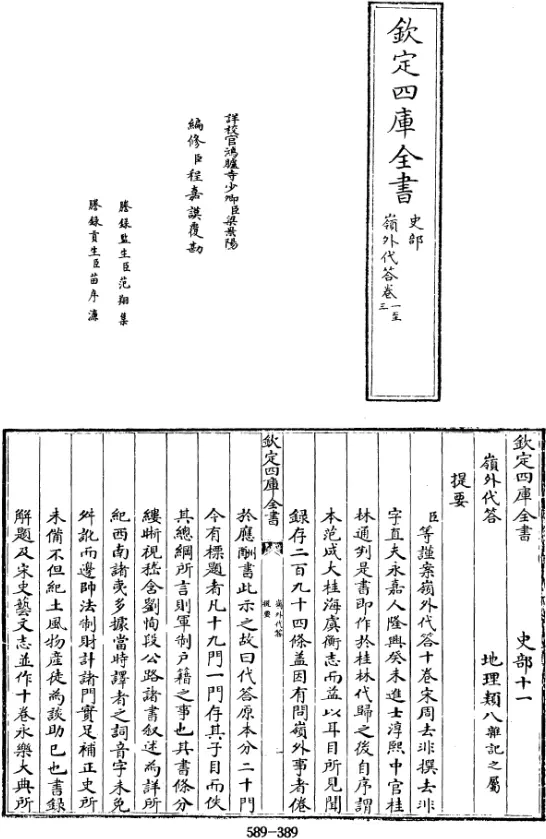 欽定四庫全書
史部
嶺外代答卷一至三
詳校官鴻臚寺少卿臣梁景陽
編修臣程嘉謨覆勘
謄錄監生臣范翔集
謄錄貢生臣苗序濂
欽定四庫全書 史部十一
嶺外代答 地理類八雜記之屬
提要
臣等謹案嶺外代答十卷宋周去非撰去非
字直夫永嘉人隆興癸未進士淳熙中官桂
林通判是書即作於桂林代歸之後自序謂
本范成大桂海虞衡志而益以耳目所見聞
錄存二百九十四條蓋因有問嶺外事者倦
欽定四庫全書
嶺外代答
提要
於應酬書此示之故曰代答原本分二十門
今有標題者凡十九門一門存其子目而佚
其總綱所言則軍制户籍之事也其書條分
縷晰視嵇含劉恂段公路諸書叙述為詳所
紀西南諸夷多據當時譯者之詞音字未免
舛訛而邊帥法制財計諸門實足補正史所
未備不但紀土風物產徒為談助已也書錄
解題及宋史藝文志並作十卷永樂大典所
589-389